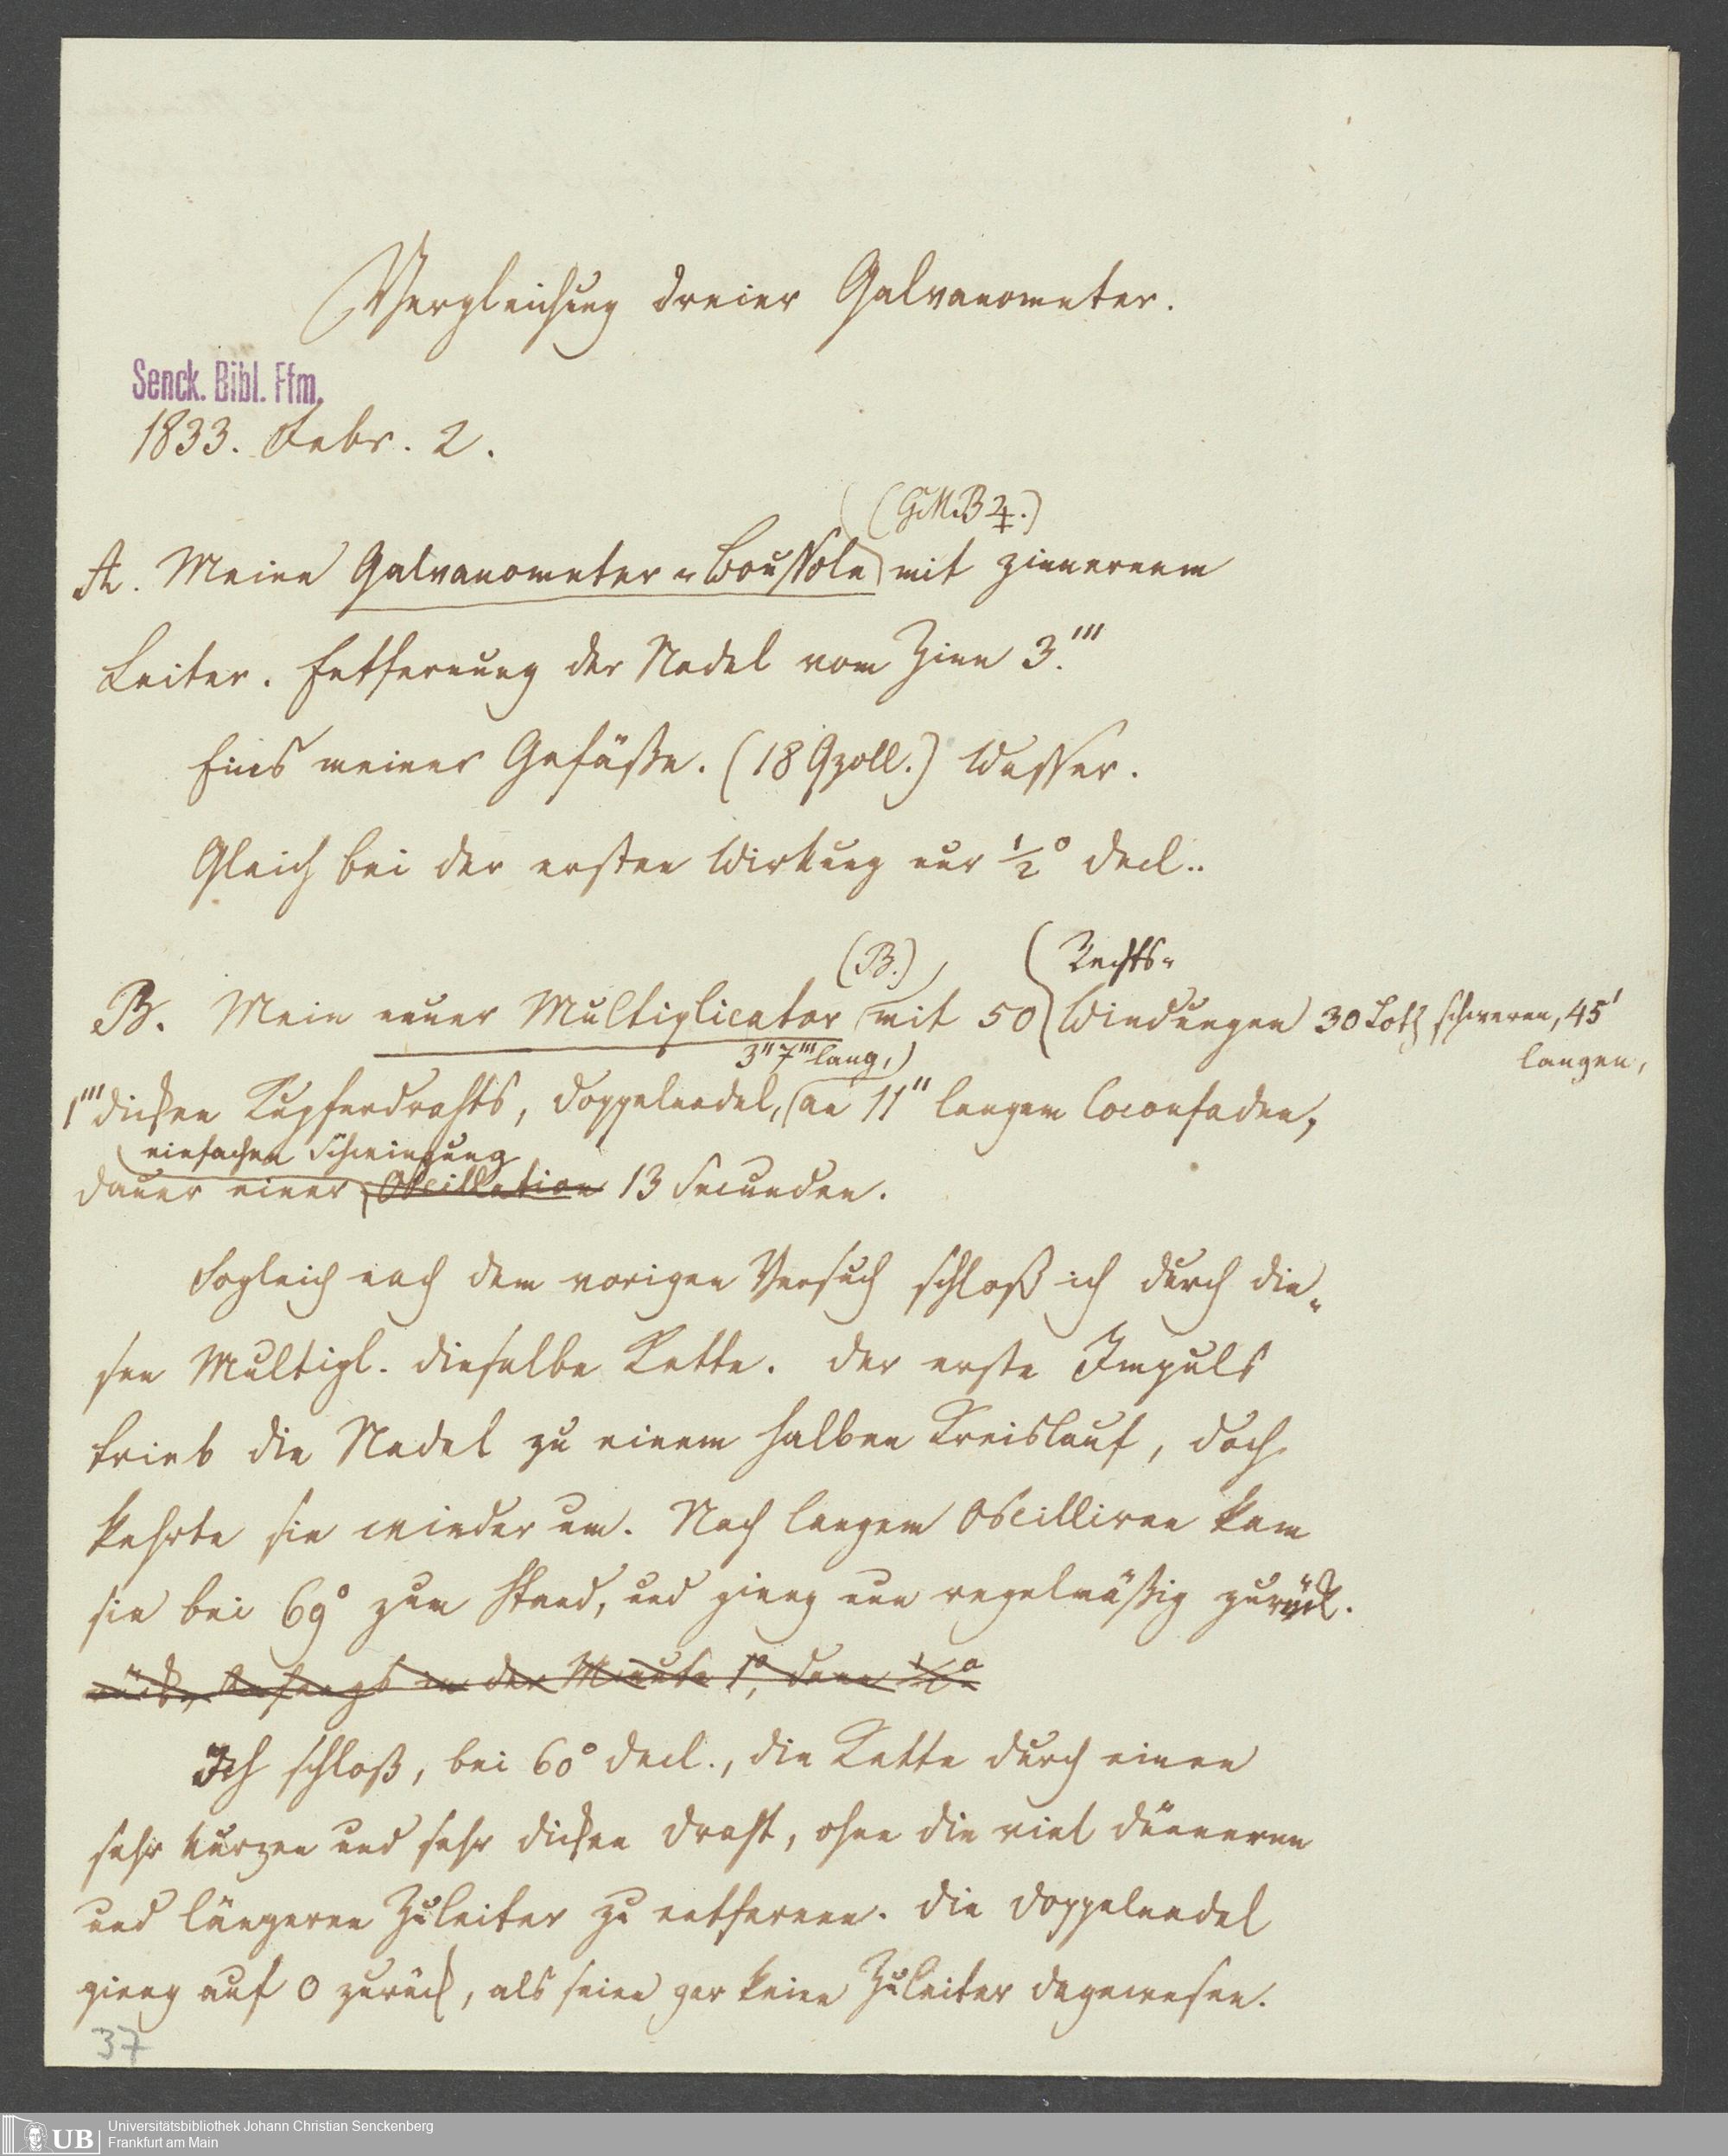 Vergleichung dreier Galvanometer.
Senck. Bibl. Ffm.
1833. Febr. 2.
(GMB ♃.)
A. Meine Galvanometer-Boussole mit zinnernem
Leiter. Entfernung der Nadel vom Zinn 3.'''
Eins meiner Gefäße. (18 Qzoll.) Wasser.
Gleich bei der ersten Wirkung nur ½° Decl..
(B.) Rechts-
B. Mein neuer Multiplicator mit 50 Windungen 30 Loth schweren, 45'
langen,
3'' 7''' lang,
1''' dicken Kupferdrahts, Doppelnadel, an 11'' langem Coconfaden,
einfachen Schwingung
Dauer einer Oscillation 13 Secunden.
Sogleich nach dem vorigen Versuch schloß ich durch die-
sen Multipl. dieselbe Kette. Der erste Impuls
trieb die Nadel zu einem halben Kreislauf, doch
kehrte sie wieder um. Nach langem Oscilliren kam
sie bei 69° zum Stand, und gieng nun regelmäßig zurück.
rück, Anfangs in der Minute 1°, dann ½°
Ich schloß, bei 60° Decl., die Kette durch einen
sehr kurzen und sehr dicken Draht, ohne die viel dünneren
und längeren Zuleiter zu entfernen. Die Doppelnadel
gieng auf 0 zurück, als seien gar keine Zuleiter dagewesen.
37
UB
Universitätsbibliothek Johann Christian Senckenberg
Frankfurt am Main